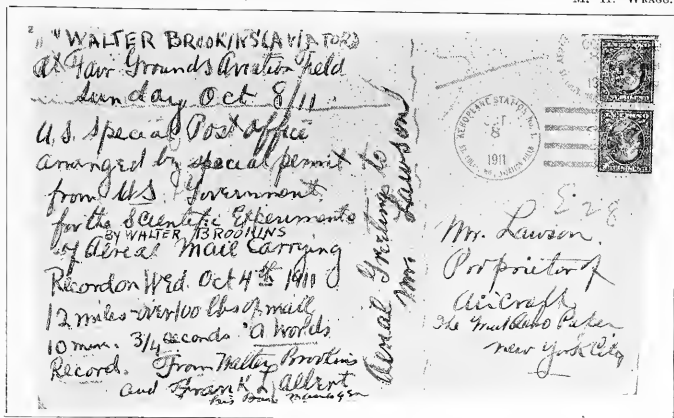 M. H. WRAGG.
"WALTER BROOKINS (AVIATOR)
at Fair Grounds Aviation field
Sunday Oct 8/11
U.S. Special Post office
arranged by special permit
from U.S. Government
for the Scientific Experiments
BY WALTER BROOKINS
of Aerial Mail Carrying
Record on Wed. Oct 4th 1911
12 miles - over 100 lbs of mail
10 min. 3/4 seconds. 'a Words
Record. From Walter Brookins
and Frank L Albert
his Manager
Aerial Greeting to
Mr. Lawson
AEROPLANE STATION No. 1.
8
1911
E 28
Mr. Lawson.
Proprietor of
Aircraft
New York City